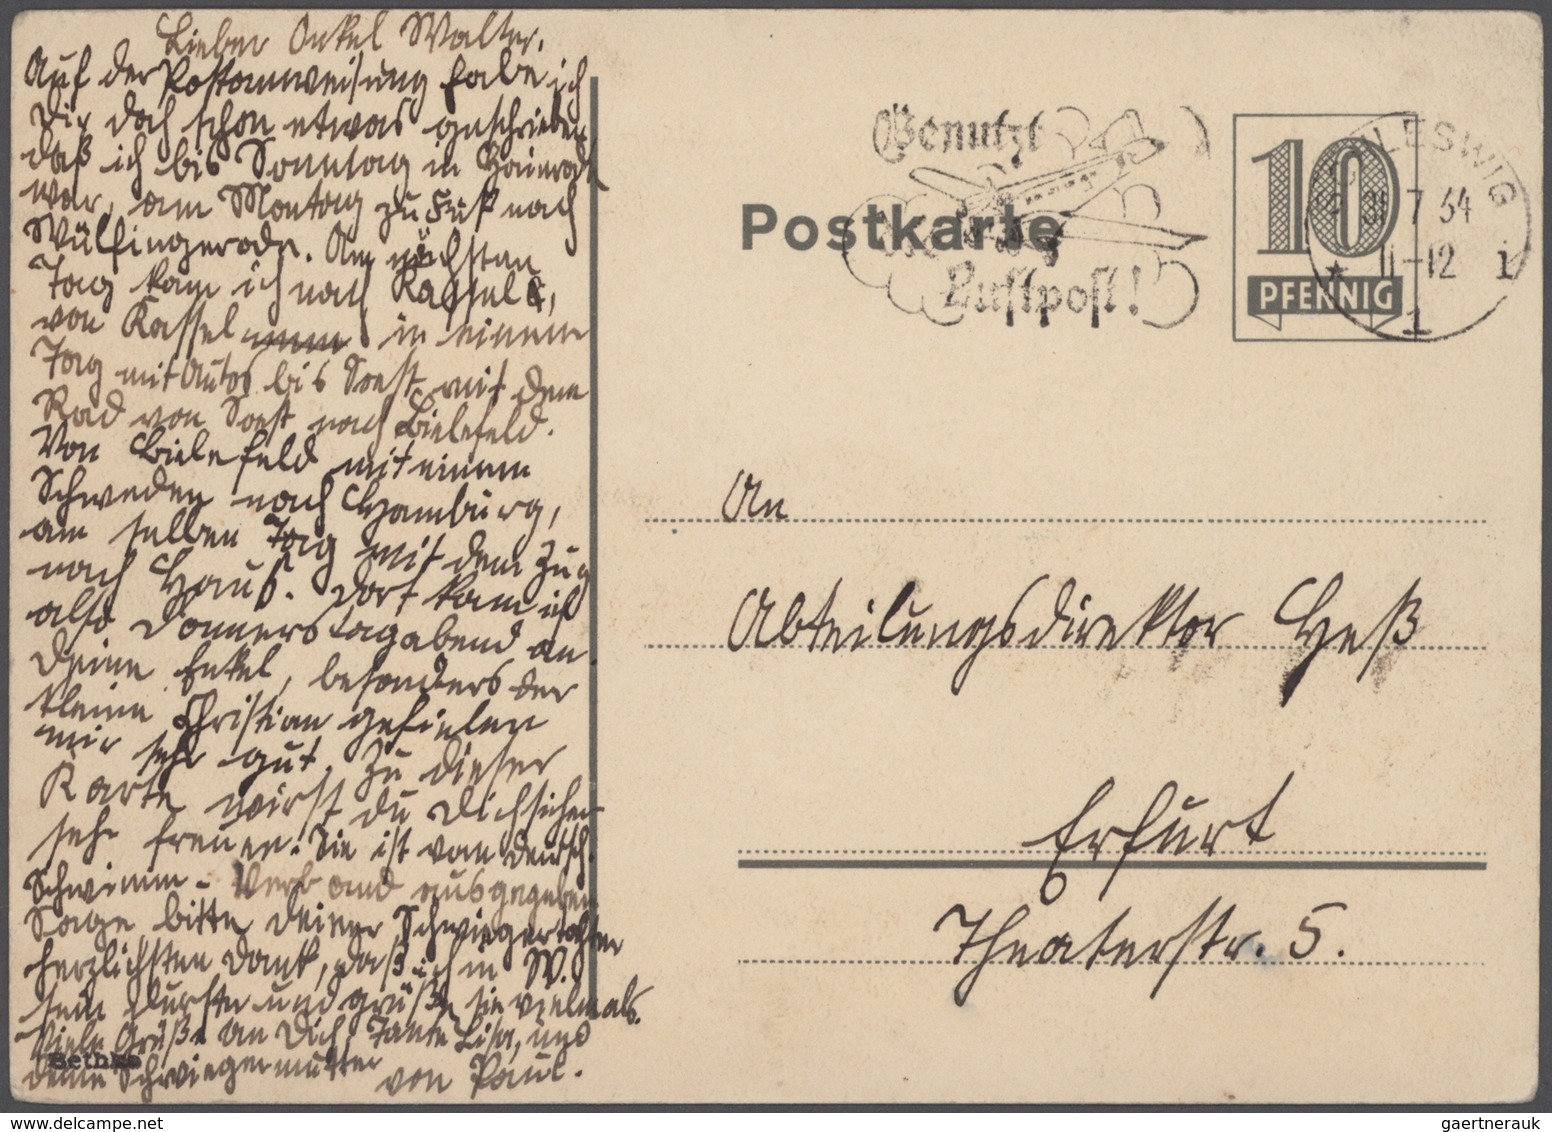 Lieber Onkel Walter.
Auf der Postanweisung habe ich
Dir doch schon etwas geschrieben
daß ich bis Sonntag in Hainrode
war, am Montag zu Fuß nach
Wülfingerode. Am nächsten
Tag kam ich nach Kassel,
von Kassel in einem
Tag mit Autos bis Soest mit dem
Rad von Soest nach Bielefeld.
Von Bielefeld mit einem
Schweden nach Hamburg,
am selben Tag mit dem Zug
nach Haus. Dort kam ich
also Donnerstagabend an.
Deine Enkel, besonders der
kleine Christian gefielen
mir sehr gut. Zu dieser
Karte wirst du Dich sicher
sehr freuen. Sie ist vom Deutsch.
Schwimm-Verband ausgegeben
Sage bitte Deiner Schwiegertochter
herzlichsten Dank, daß ich in W.
sein durfte und grüße sie vielmals.
Viele Grüße an Dich, Tante Lisa, und
deine Schwiegermutter
von Paul.
Bethke
Benutzt
Luftpost!
Postkarte
10
PFENNIG
SCHLESWIG
31 7 34
11-12
i
1
An
Abteilungsdirektor Heß
Erfurt
Theaterstr. 5.
gaertnerauk